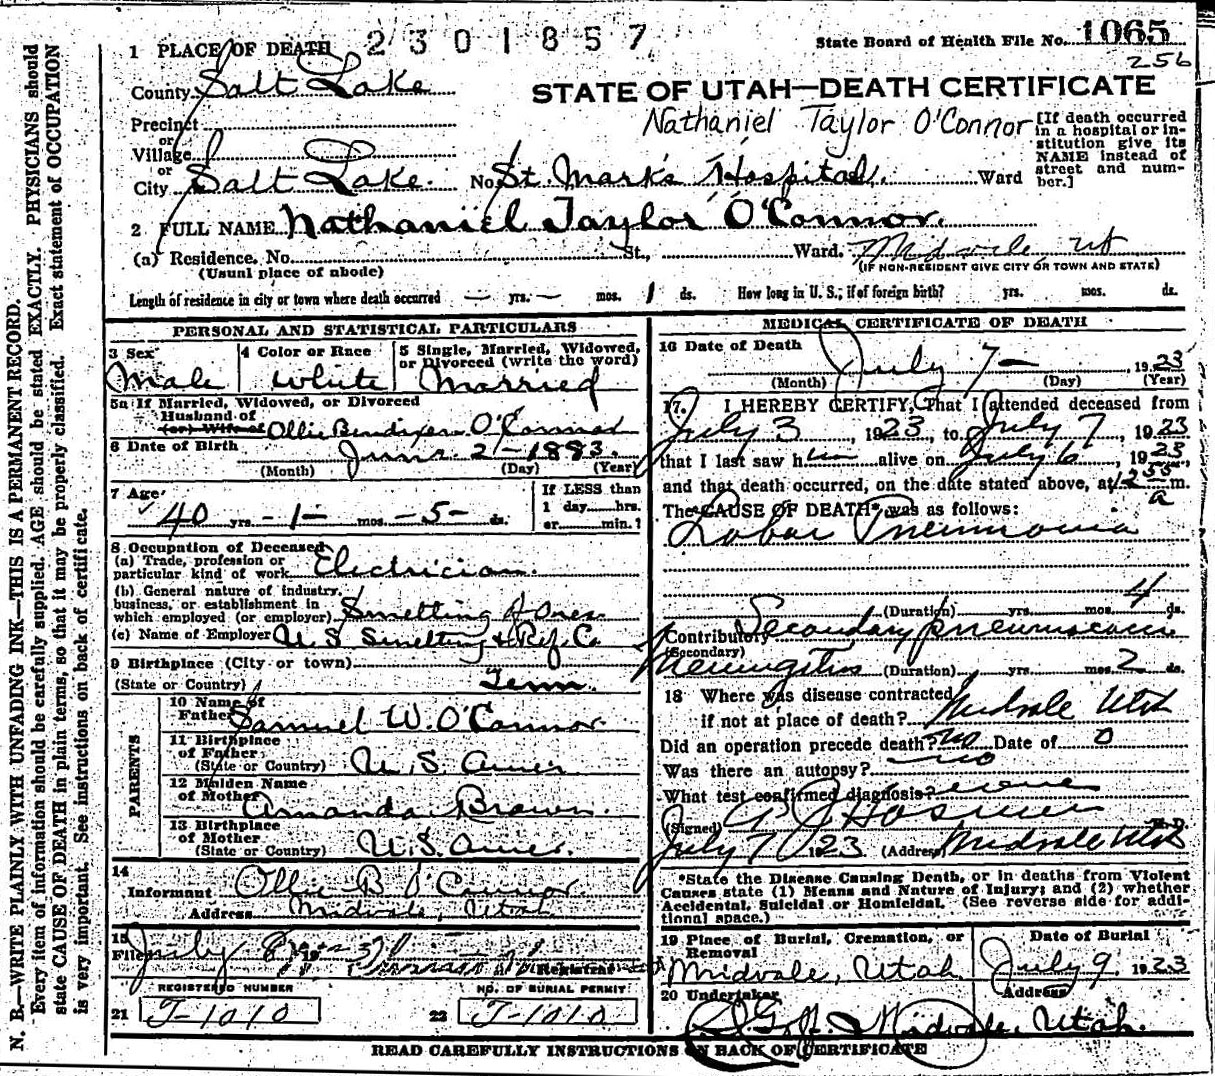 2301857
State Board of Health File No. 1065
256
1 PLACE OF DEATH
County Salt Lake
STATE OF UTAH—DEATH CERTIFICATE
Nathaniel Taylor O'Connor
Precinct
or
Village
or
City Salt Lake. No. St. Mark's Hospital. Ward
[If death occurred
in a hospital or in-
stitution give its
NAME instead of
street and num-
ber.]
2 FULL NAME Nathaniel Taylor O'Connor.
(a) Residence. No. St., Ward. Midvale, Ut
(Usual place of abode)
(IF NON-RESIDENT GIVE CITY OR TOWN AND STATE)
Length of residence in city or town where death occurred — yrs. — mos. 1 ds. How long in U. S., if of foreign birth? yrs. mos. ds.
PERSONAL AND STATISTICAL PARTICULARS
3 Sex
Male
4 Color or Race
White
5 Single, Married, Widowed,
or Divorced (write the word)
Married
5a If Married, Widowed, or Divorced
Husband of
(or) Wife of Ollie O'Connor
6 Date of Birth June 2 - 1883.
(Month) (Day) (Year)
7 Age
40 yrs. - 1 - mos. - 5 - ds.
If LESS than
1 day hrs.
or min.?
8 Occupation of Deceased
(a) Trade, profession or
particular kind of work Electrician.
(b) General nature of industry,
business, or establishment in
which employed (or employer) Smelting of Ores
(c) Name of Employer U S Smelting & Ref. C.
9 Birthplace (City or town)
(State or Country) Tenn.
PARENTS
10 Name of
Father Samuel W. O'Connor
11 Birthplace
of Father
(State or Country) U.S. Amer
12 Maiden Name
of Mother Amanda Brown.
13 Birthplace
of Mother
(State or Country) U.S. Amer.
14
Informant Ollie B O'Connor
Address Midvale, Utah
15
Filed July
Registrar
REGISTERED NUMBER
21 T-1010
NO. OF BURIAL PERMIT
22 T-1010
MEDICAL CERTIFICATE OF DEATH
16 Date of Death
July 7 — , 1923
(Month) (Day) (Year)
17. I HEREBY CERTIFY, That I attended deceased from
July 3, 1923, to July 7, 1923
that I last saw him alive on July 6, 1923,
and that death occurred, on the date stated above, at 1255 a m.
The CAUSE OF DEATH* was as follows:
Lobar Pneumonia
(Duration) yrs. mos. 4 ds.
Contributory Secondary pneumococcic
(Secondary)
Meningitis (Duration) yrs. mos. 2 ds.
18 Where was disease contracted
if not at place of death? Midvale Utah
Did an operation precede death? No Date of 0
Was there an autopsy? no
What test confirmed diagnosis?
(Signed) Hosmer M.D.
July 7 1923 (Address) Midvale Utah
*State the Disease Causing Death, or in deaths from Violent
Causes state (1) Means and Nature of Injury; and (2) whether
Accidental, Suicidal or Homicidal. (See reverse side for addi-
tional space.)
19 Place of Burial, Cremation, or
Removal
Midvale, Utah
Date of Burial
July 9 1923
20 Undertaker
Address
Midvale, Utah.
READ CAREFULLY INSTRUCTIONS ON BACK OF CERTIFICATE
N. B.—WRITE PLAINLY WITH UNFADING INK—THIS IS A PERMANENT RECORD.
Every item of information should be carefully supplied. AGE should be stated EXACTLY. PHYSICIANS should
state CAUSE OF DEATH in plain terms, so that it may be properly classified. Exact statement of OCCUPATION
is very important. See instructions on back of certificate.